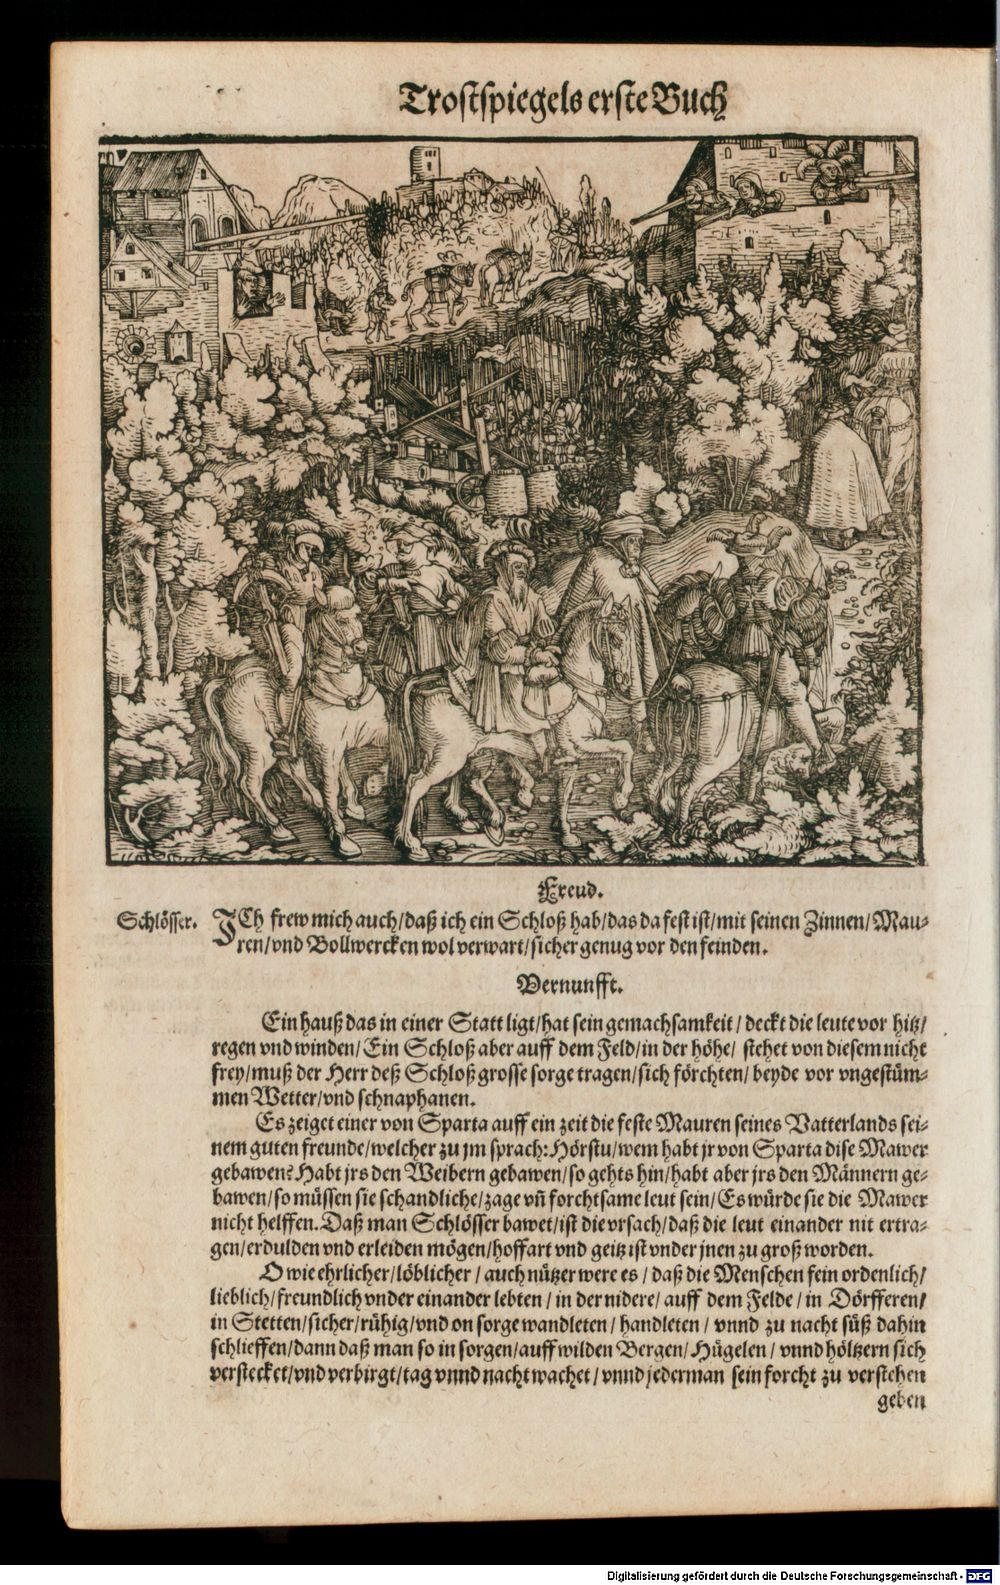 Trostspiegels erste Buch
Freud.
Schlösser.
ICh frew mich auch/daß ich ein Schloß hab/das da fest ist/mit seinen Zinnen/Mau-
ren/vnd Bollwercken wol verwart/sicher genug vor den feinden.
Vernunfft.
Ein hauß das in einer Statt ligt/hat sein gemachsamkeit/deckt die leute vor hitz/
regen vnd winden/Ein Schloß aber auff dem Feld/in der höhe/stehet von diesem nicht
frey/muß der Herr deß Schloß grosse sorge tragen/sich förchten/beyde vor vngestüm-
men Wetter/vnd schnaphanen.
Es zeiget einer von Sparta auff ein zeit die feste Mauren seines Vatterlands sei-
nem guten freunde/welcher zu jm sprach: Hörstu/wem habt jr von Sparta dise Mawer
gebawen? Habt jrs den Weibern gebawen/so gehts hin/habt aber jrs den Männern ge-
bawen/so müssen sie schandliche/zage vñ forchtsame leut sein/Es würde sie die Mawer
nicht helffen. Daß man Schlösser bawet/ist die vrsach/daß die leut einander nit ertra-
gen/erdulden vnd erleiden mögen/hoffart vnd geitz ist vnder jnen zu groß worden.
O wie ehrlicher/löblicher/auch nützer were es/daß die Menschen fein ordenlich/
lieblich/freundlich vnder einander lebten/in der nidere/auff dem Felde/in Dörfferen/
in Stetten/sicher/rühig/vnd on sorge wandleten/handleten/vnnd zu nacht süß dahin
schlieffen/dann daß man so in sorgen/auff wilden Bergen/Hügelen/vnnd höltzern sich
verstecket/vnd verbirgt/tag vnnd nacht wachet/vnnd jederman sein forcht zu verstehen
geben
Digitalisierung gefördert durch die Deutsche Forschungsgemeinschaft - DFG